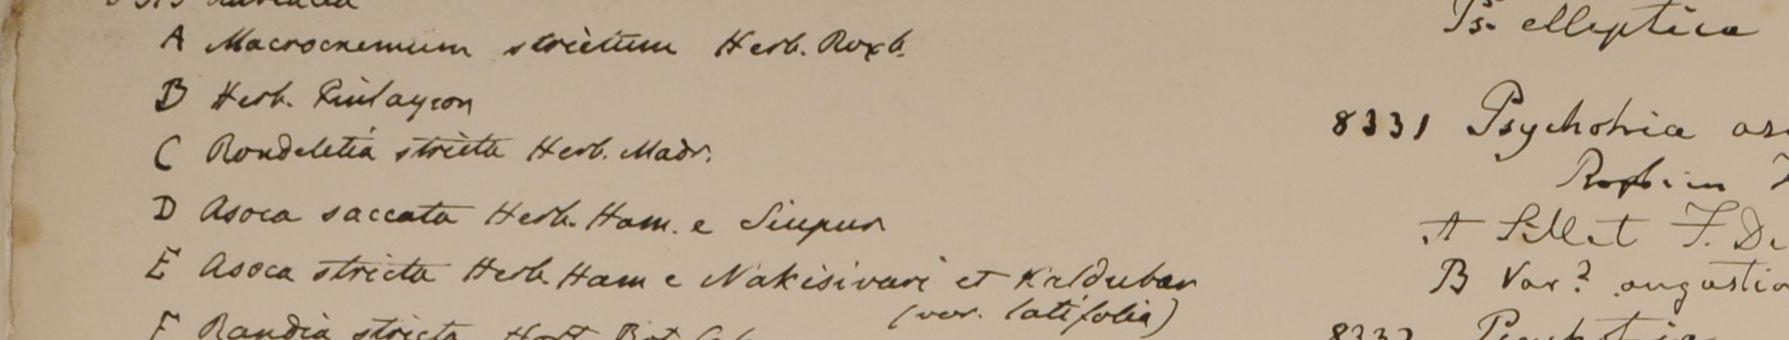 A Macrocnemum strictum Herb. Roxb.
B Herb. Finlayson
C Rondeletia stricta Herb. Madr.
D Asoca saccata Herb. Ham. e
E Asoca stricta Herb Ham e Nakisivari et
(var. latifolia)
F Randia stricta Hort Bot
Ps. elliptica
8331 Psychotria
Roxb in
A Sillet F. De
B Var? angustio
8332 Psychotria